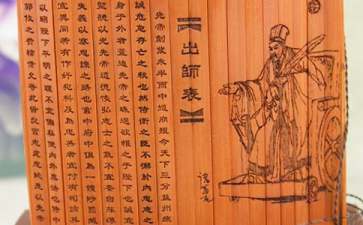 出師表
先帝創業未半而中道崩殂今天下三分益州疲
誠危急存亡之秋也然侍衛之臣不懈於內忠志之
身於外者蓋追先帝之殊遇欲報之于陛下也誠
聖聽以光先帝遺德恢弘志士之氣不宜妄自菲薄
失義以塞忠諫之路也宮中府中俱為一體陟罰臧
宜異同若有作奸犯科及為忠善者宜付有司論
以昭陛下平明之理不宜偏私使內外異法也侍中
郭攸之費禕董允等此皆良實志慮忠純是以先帝
諸葛亮